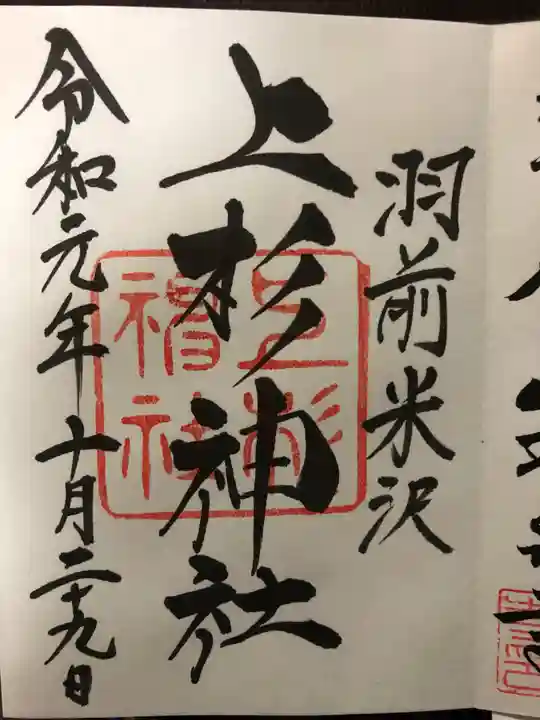 羽前米沢
上杉神社
上杉神社
令和元年十月二十九日